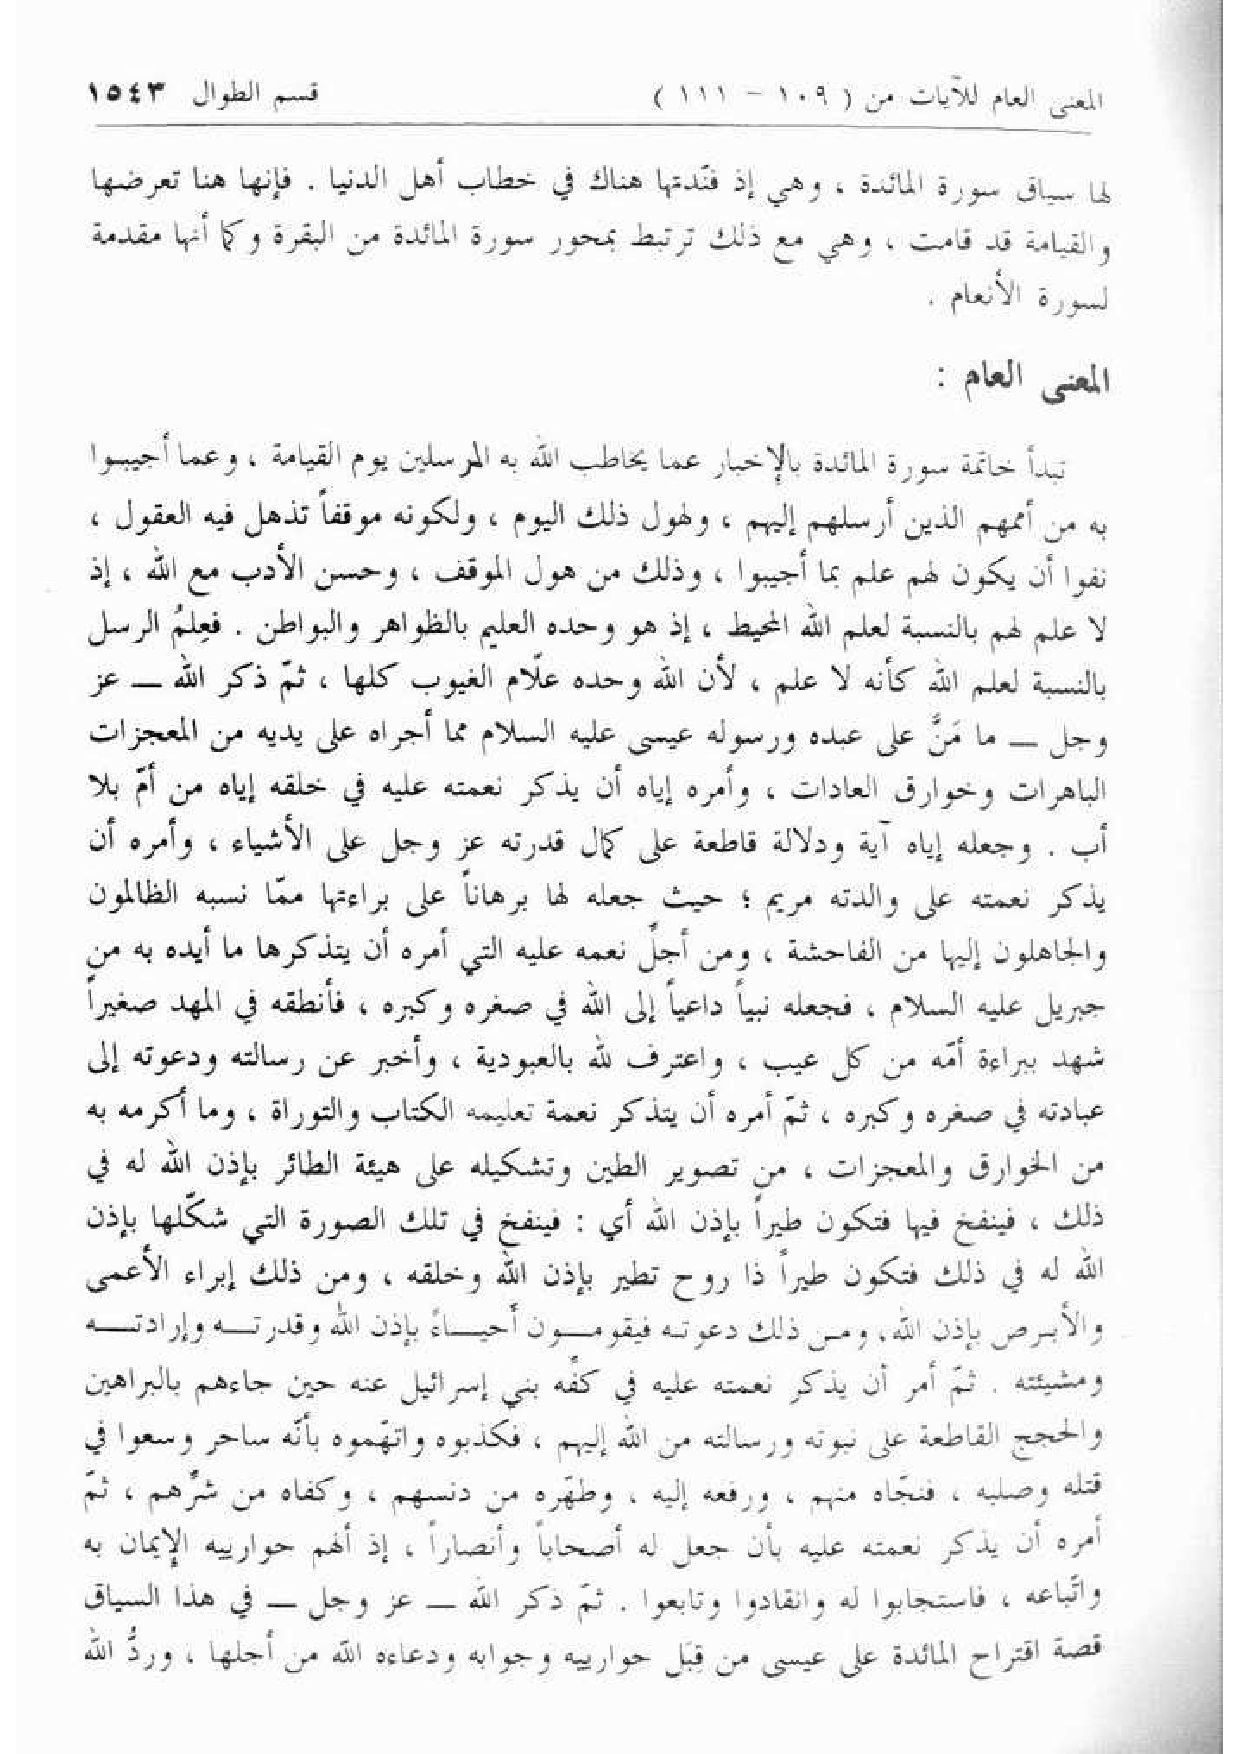 المعنى العام للآيات من ( ١٠٩ - ١١١ )
قسم الطوال ١٥٤٣
لها سياق سورة المائدة ، وهي إذ فنّدتها هناك في خطاب أهل الدنيا . فإنها هنا تعرضها
والقيامة قد قامت ، وهي مع ذلك ترتبط بمحور سورة المائدة من البقرة وكما أنها مقدمة
لسورة الأنعام .
المعنى العام :
تبدأ خاتمة سورة المائدة بالإخبار عما يخاطب الله به المرسلين يوم القيامة ، وعما أجيبوا
به من أممهم الذين أرسلهم إليهم ، ولهول ذلك اليوم ، ولكونه موقفاً تذهل فيه العقول ،
نفوا أن يكون لهم علم بما أجيبوا ، وذلك من هول الموقف ، وحسن الأدب مع الله ، إذ
لا علم لهم بالنسبة لعلم الله المحيط ، إذ هو وحده العليم بالظواهر والبواطن . فعِلمُ الرسل
بالنسبة لعلم الله كأنه لا علم ، لأن الله وحده علّام الغيوب كلها ، ثمّ ذكر الله ــ عز
وجل ــ ما مَنَّ على عبده ورسوله عيسى عليه السلام مما أجراه على يديه من المعجزات
الباهرات وخوارق العادات ، وأمره إياه أن يذكر نعمته عليه في خلقه إياه من أمّ بلا
أب . وجعله إياه آية ودلالة قاطعة على كمال قدرته عز وجل على الأشياء ، وأمره أن
يذكر نعمته على والدته مريم ؛ حيث جعله لها برهاناً على براءتها ممّا نسبه الظالمون
والجاهلون إليها من الفاحشة ، ومن أجلّ نعمه عليه التي أمره أن يتذكرها ما أيده به من
جبريل عليه السلام ، فجعله نبياً داعياً إلى الله في صغره وكبره ، فأنطقه في المهد صغيراً
شهد ببراءة أمّه من كل عيب ، واعترف لله بالعبودية ، وأخبر عن رسالته ودعوته إلى
عبادته في صغره وكبره ، ثمّ أمره أن يتذكر نعمة تعليمه الكتاب والتوراة ، وما أكرمه به
من الخوارق والمعجزات ، من تصوير الطين وتشكيله على هيئة الطائر بإذن الله له في
ذلك ، فينفخ فيها فتكون طيراً بإذن الله أي : فينفخ في تلك الصورة التي شكّلها بإذن
الله له في ذلك فتكون طيراً ذا روح تطير بإذن الله وخلقه ، ومن ذلك إبراء الأعمى
والأبرص بإذن الله، ومن ذلك دعوته فيقومون أحياءً بإذن الله وقدرته وإرادته
ومشيئته . ثمّ أمر أن يذكر نعمته عليه في كفّه بني إسرائيل عنه حين جاءهم بالبراهين
والحجج القاطعة على نبوته ورسالته من الله إليهم ، فكذبوه واتهّموه بأنّه ساحر وسعوا في
قتله وصلبه ، فنجّاه منهم ، ورفعه إليه ، وطهّره من دنسهم ، وكفاه من شرّهم ، ثمّ
أمره أن يذكر نعمته عليه بأن جعل له أصحاباً وأنصاراً ، إذ ألهم حوارييه الإيمان به
واتّباعه ، فاستجابوا له وانقادوا وتابعوا . ثمّ ذكر الله ــ عز وجل ــ في هذا السياق
قصة اقتراح المائدة على عيسى من قِبَل حوارييه وجوابه ودعاءه الله من أجلها ، وردُّ الله